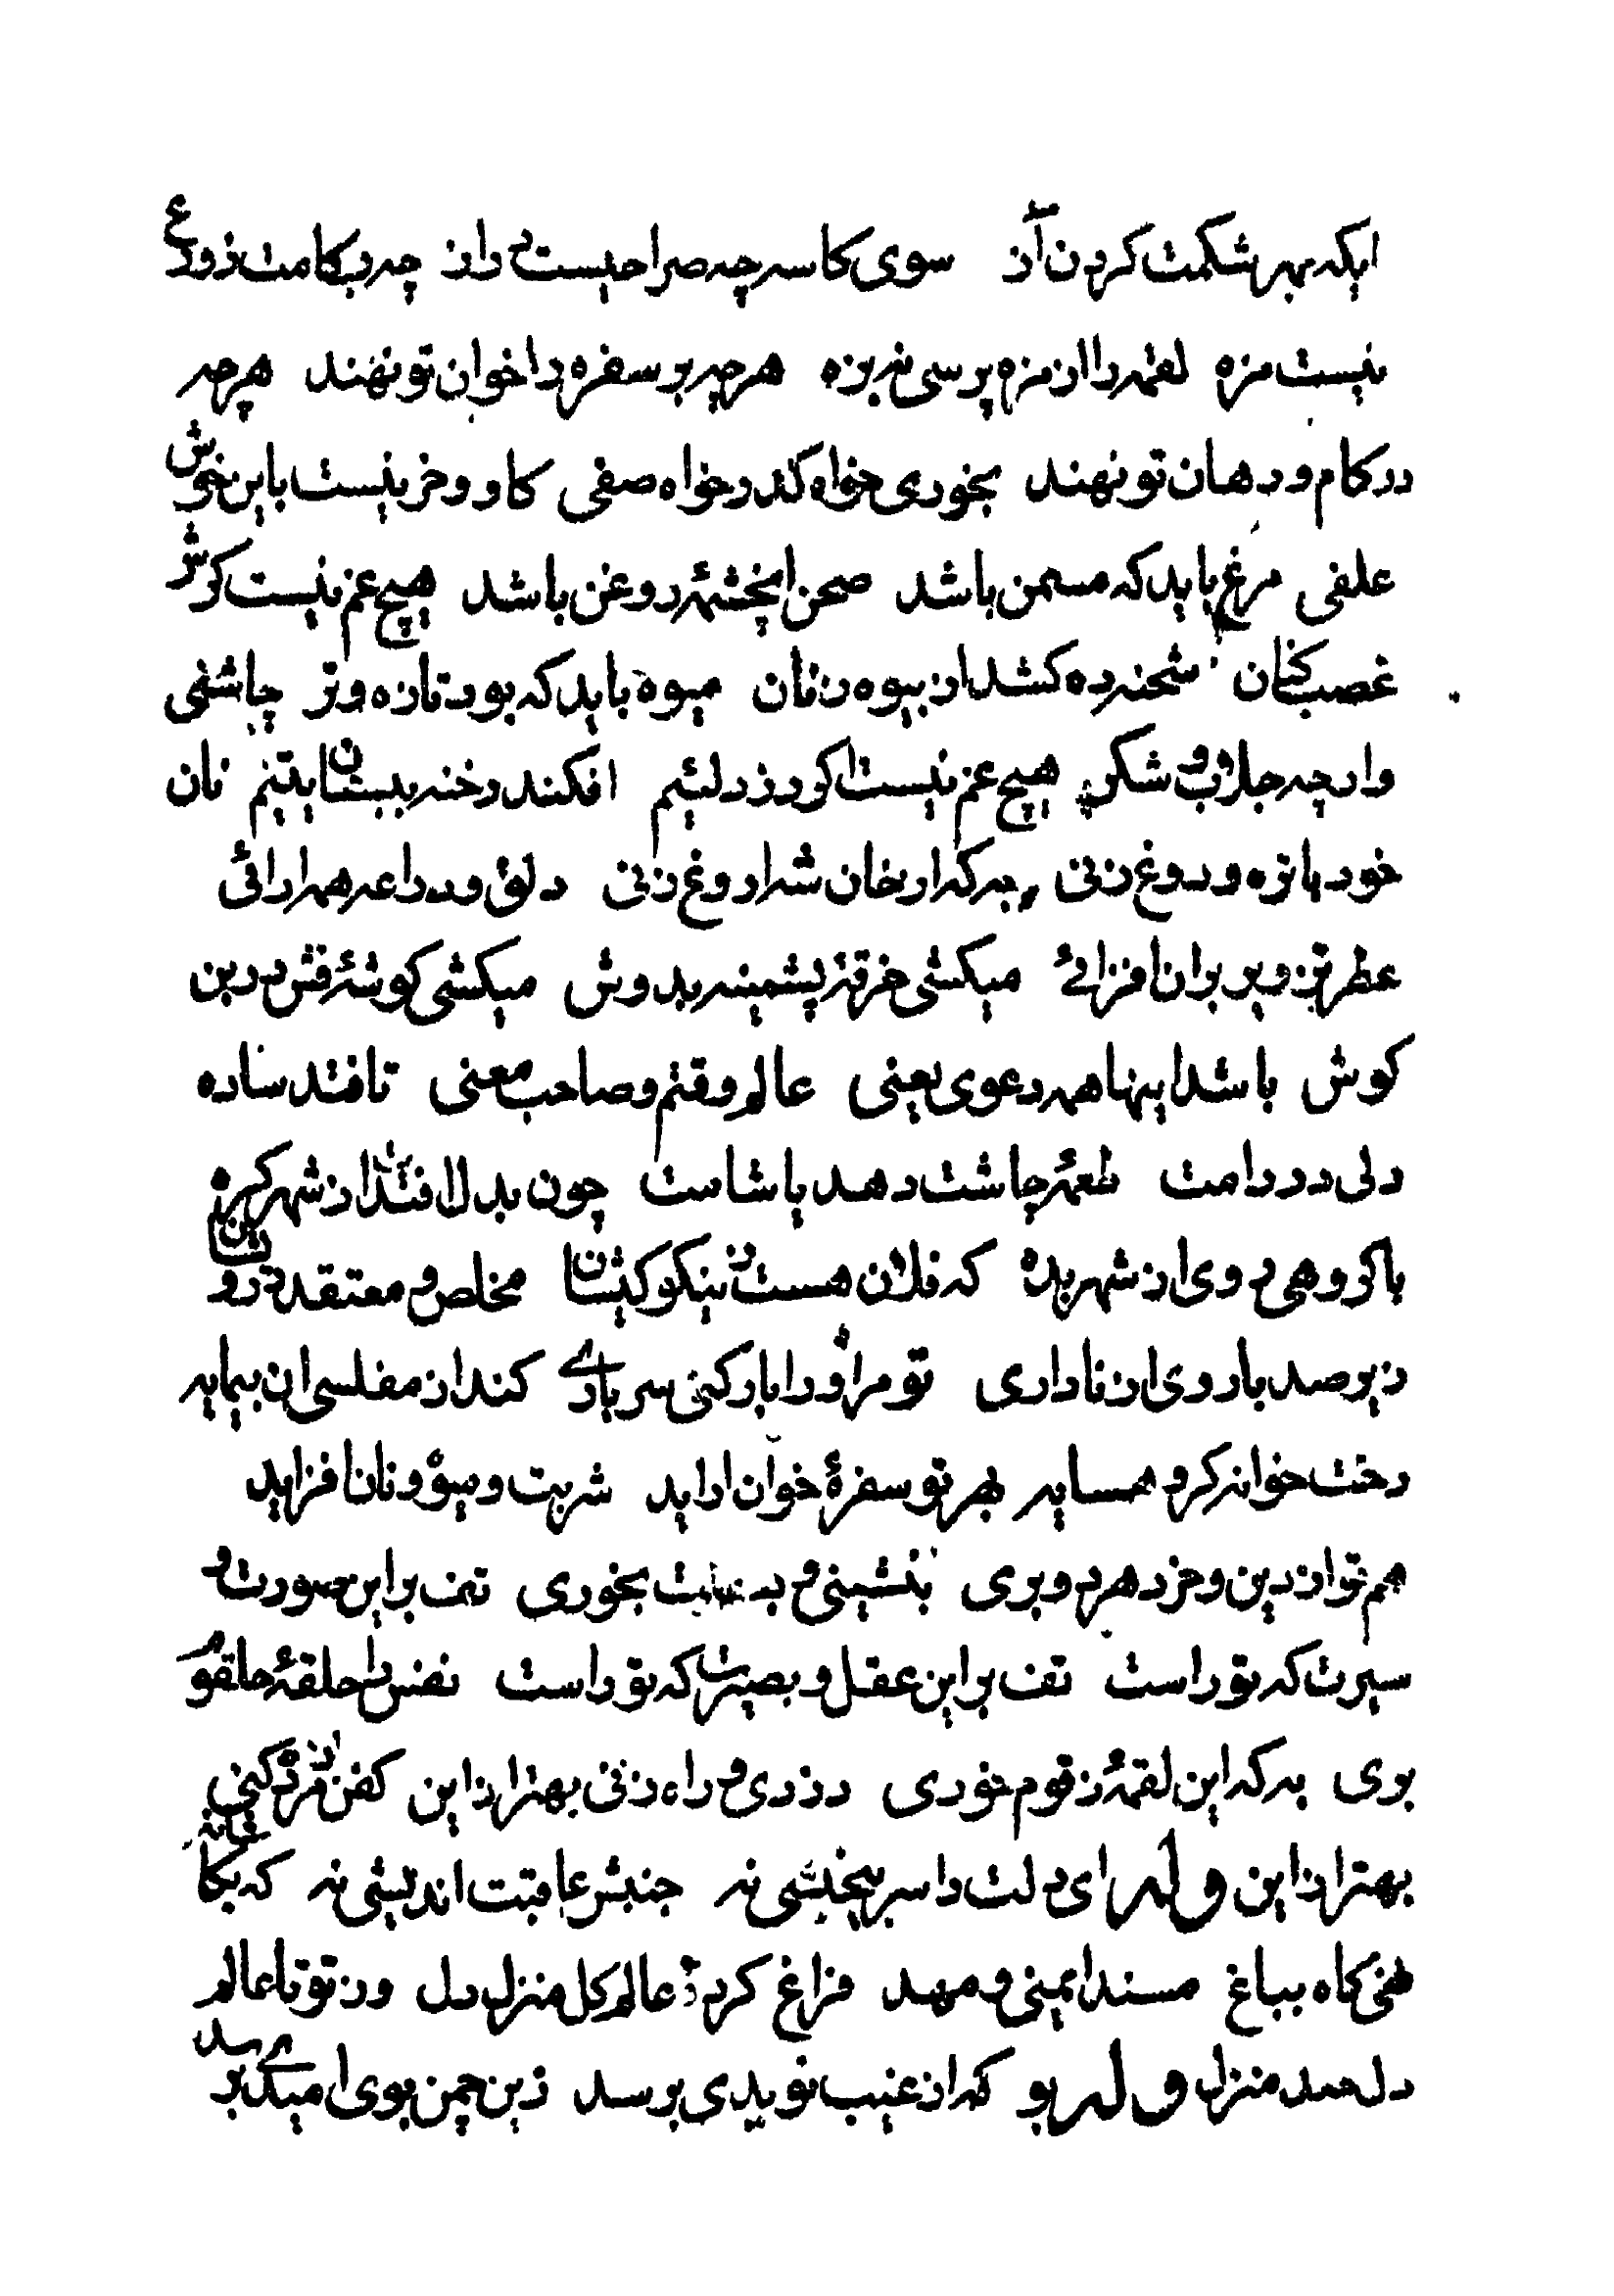 ایکه بهر شکمت کردن آز سوی کاسه چه صراحیست دراز چه در کامت ز دوزغ
نیست مزه لقمه را از مزه پرسی نه بزه هرچه بر سفره و خوان تو نهند هرچه
در کام و دهان تو نهند بخوری خواه کدر خواه صفی کاو و خر نیست باین خوش
علفی مرغ باید که مسمن باشد صحن روغن باشد هیچ غم نیست کوش
غصب کنان شحنه ده کشد از بیوه زنان میوه باید که بود تازه و تر چاشنی
وار چه جلاب و شکر هیچ غم نیست اکر دزد لئیم افکند رخنه ببستان یتیم نان
خود با تره و دوغ زنی به که از خوان شه اروغ زنی دلق و دراعه همی ارائی
عطر تزویر بران افزائی میکشی خرقه پشمینه بدوش میکشی کوشه فش در بن
کوش باشد اینها همه دعوی یعنی عالم وقتم و صاحب معنی تا فتد ساده
دلی در دامت طعمه چاشت دهد یا شامت چون بدل افتد از شهر کره
با کروهی روی از شهر بده که فلان هست ز نیکو کیشان مخلص و معتقد درویشان
زیر صد بار وی از ناداری تو مر او را بار کنی سرباری کند از مفلسی ان بیمایه
رخت خوانه کرو همسایه بهر تو سفره خوان اراید شربت و میوه و نان افزاید
هم تو از دین و خرد هر دو بری بنشینی و بخوری تف براین صورت و
سیرت که تو راست تف براین عقل و بصیرت که تو راست نفس را حلقه حلقوم
بری به که این لقمه زقوم خوری دزدی و راه زنی بهتر از این کفن از مرده کنی
بهتر از این وله ای دلت را سر بیخیشی نه جنبش عاقبت اندیشی نه که بکاشانه
کهی کاه بباغ مسند ایمنی و مهد فراغ کرد ز عالم کل منزل دل ور تو تا عالم
دل صد منزل وله بو که از غیب نویدی برسد زین چمن بوی امیدی برسد